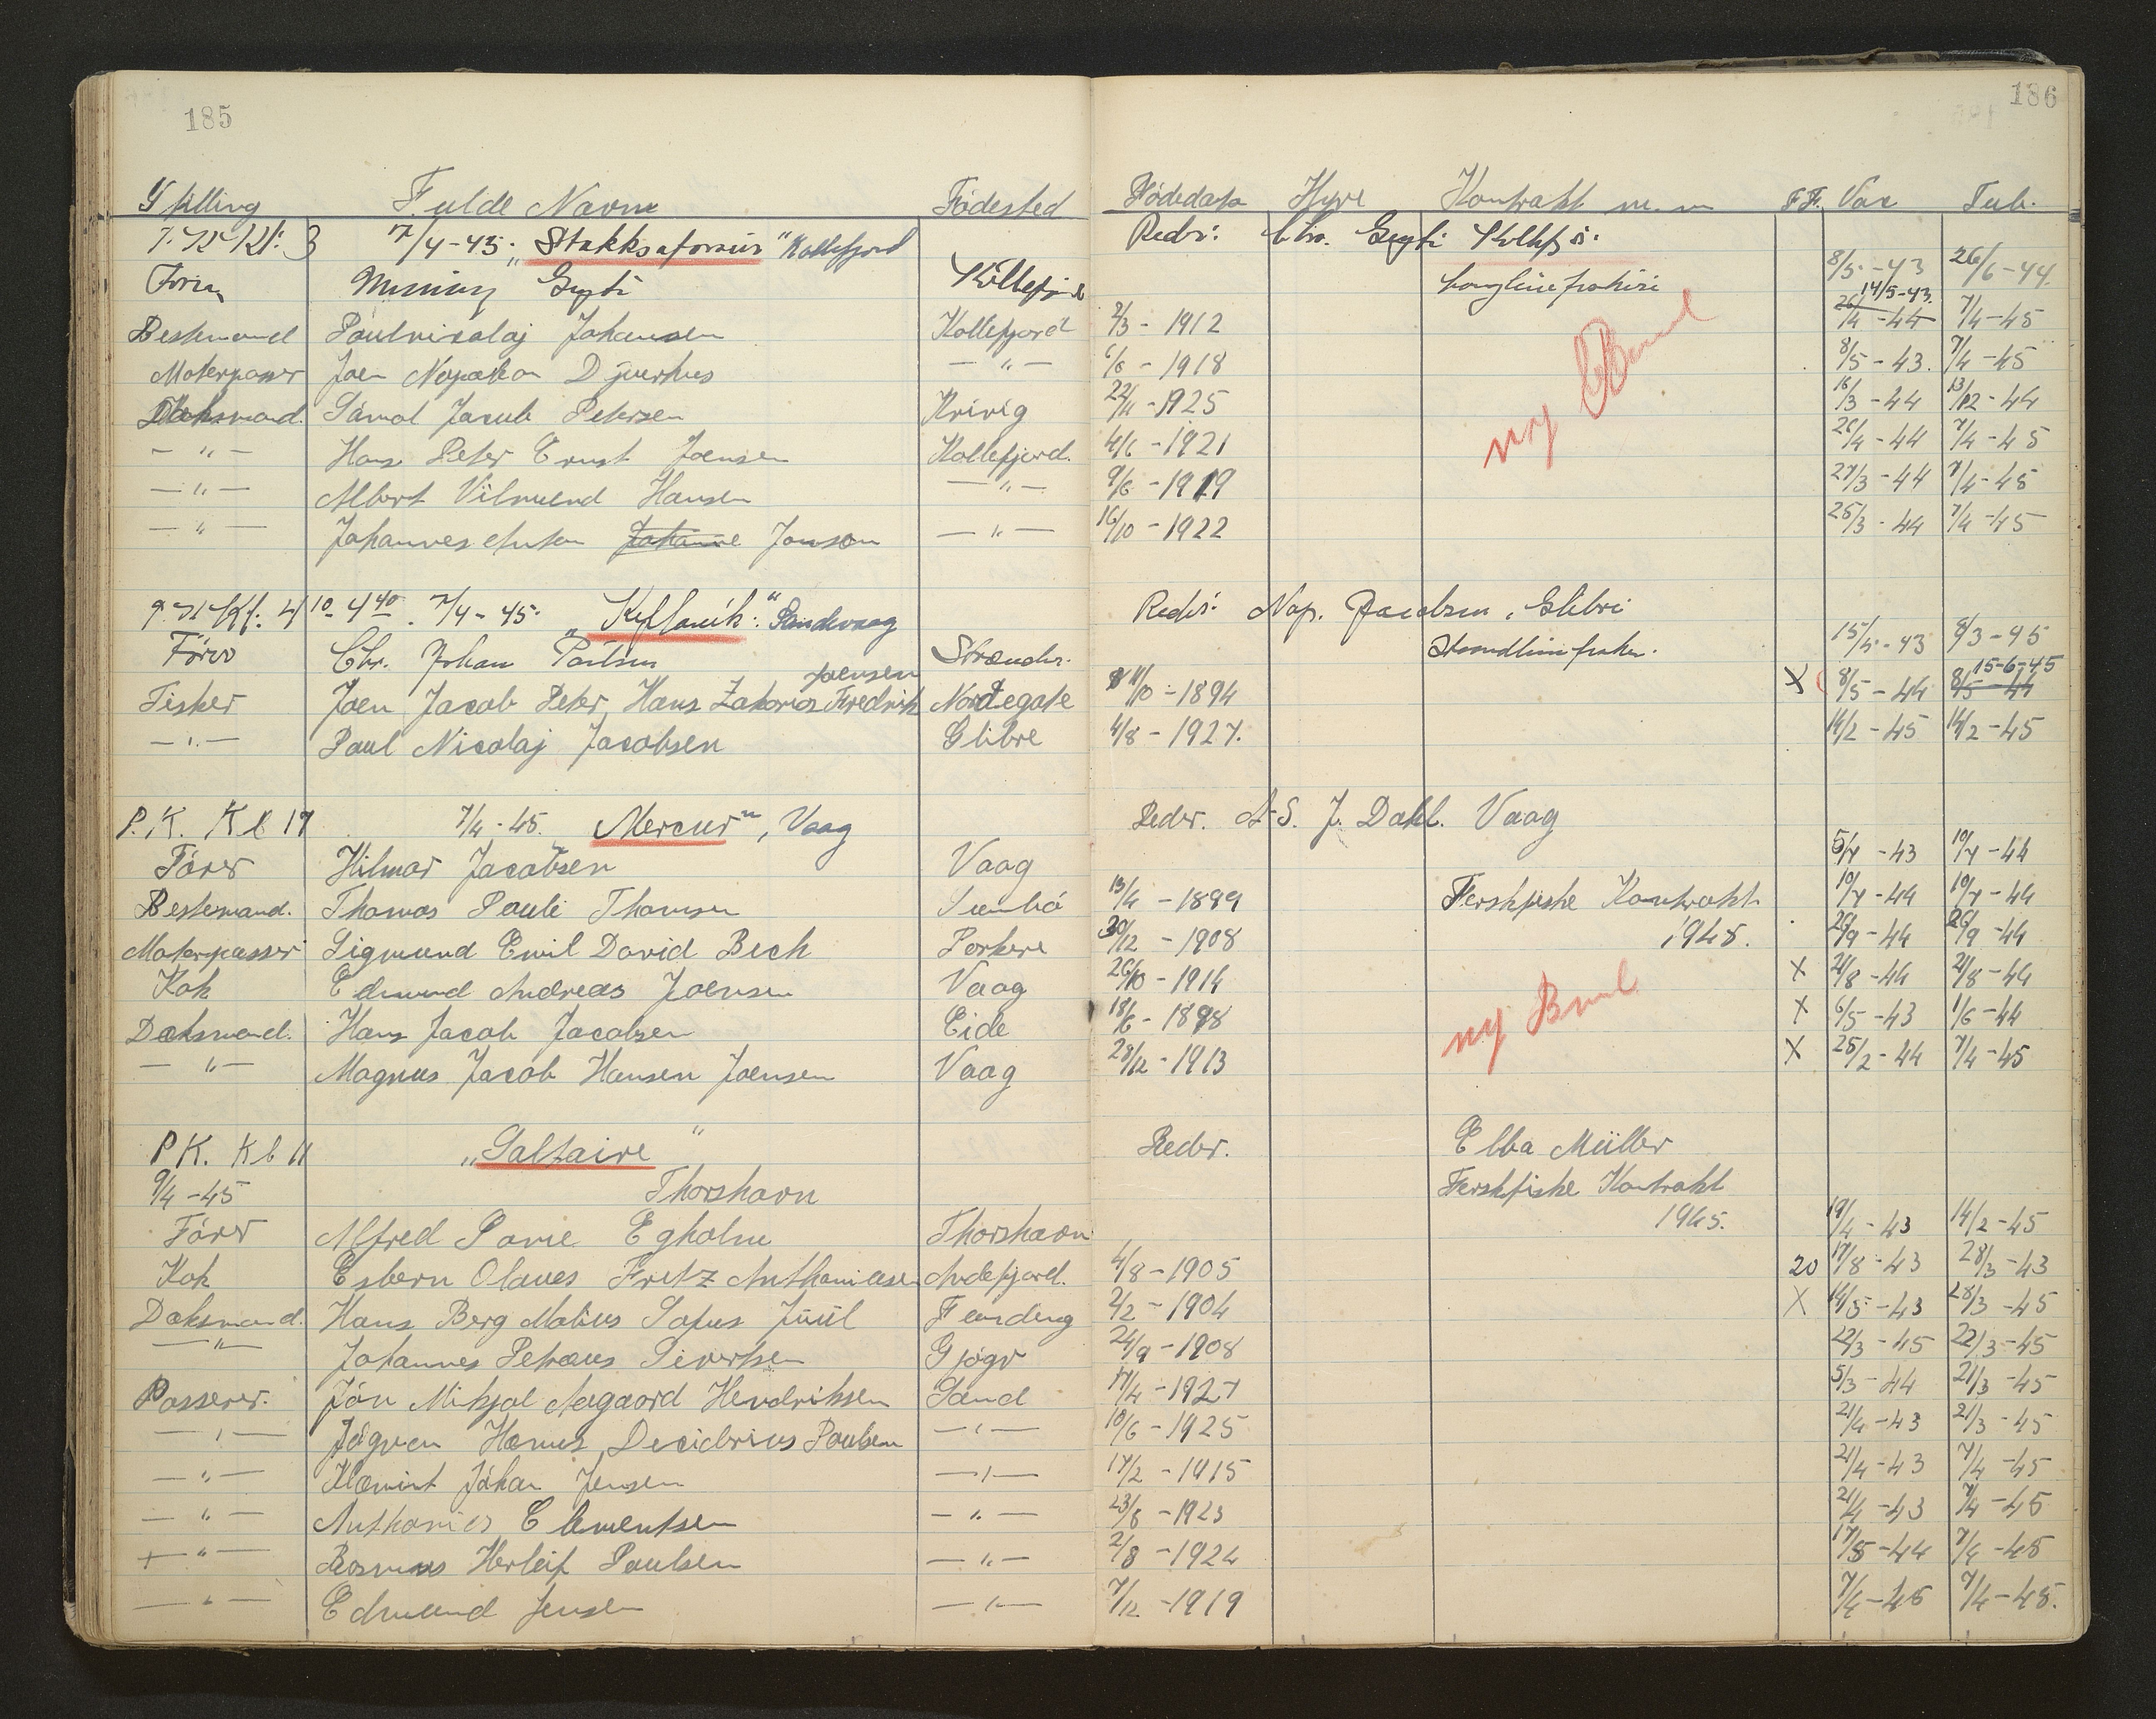 185
186
Stilling Fulde Navn Fødested Fødedato Hyre Kontrakt m. m FF. Vac Tub.
7/4-45. „Stakksaforour" Kollefjord Reder: Chr. Kollefj:
Kollefjord Longlinefiskeri 8/5-43 26/6-44.
14/5-43.
Bestmand Poulnicolaj Johansen Kollefjord 2/3-1912 26/4-44 7/4-45
Motorpasser Joen Napoleon Djurhus —"— 6/6-1918 8/5-43. 7/4-45
Dæksmand. Sámal Jacob Petersen Kvivig 22/11-1925 16/3-44 13/12-44
—"— Hans Peter Ernst Joensen Kollefjord. 4/6-1921 26/4-44 7/4-45
—"— Albert Vilmund Hansen —"— 9/6-1919 27/3-44 7/4-45
—"— Johannes Anton Johanne Joensen —"— 16/10-1922 25/3-44 7/4-45
ny Beml
10-440. 7/4-45. „Keflavik". Sandevaag Reder: Nap. Jacobsen, Glibri
Fører Chr. Johan Poulsen Strænder. Haandlinefisker. 15/5-43 8/3-45
Joensen 15-6-45
Fisker Joen Jacob Peter Hans Zakarias Fredrik Nordegøte 11/10-1894 X 8/5-44 8/5-44
—"— Paul Nicolaj Jacobsen Glibre 4/8-1927. 14/2-45 14/2-45
P.K. Kl 17 7/4-45. Mercur", Vaag Reder. A-S. J. Dahl. Vaag
Fører Hilmar Jacobsen Vaag 5/7-43 10/7-44
Bestemand. Thomas Pauli Thomsen Sumbó 13/4-1899 Ferskfiske Kontrakt 10/7-44 10/7-44
Motorpasser Sigmund Emil David Bech Porkere 30/12-1908 1945. 26/9-44 26/9-44
Kok Edmund Andreas Joensen Vaag 26/10-1914 X 21/8-44 21/8-44
Dæksmand. Hans Jacob Jacobsen Eide 18/6-1898 X 6/5-43 1/6-44
—"— Magnus Jacob Hansen Joensen Vaag 28/12-1913 X 25/2-44 7/4-45
ny Bemd
P K. Kl 11 „Saltaire" Reder. Ebba Müller
9/4-45 Thorshavn Ferskfiske Kontrakt
1945.
Fører Alfred Egholm Thorshavn 19/4-43 14/2-45
Kok Esbern Olaves Fritz Anthoniasen Andefjord. 4/8-1905 20 17/8-43 28/3-43
Dæksmand. Hans Berg Mobius Sofus Juül Funding 2/2-1904 X 14/5-43 28/3-45
—"— Johannes Petræus Sivertsen Gjógv 24/9-1908 22/3-45 22/3-45
Passerer. Jón Mikjal Aagaard Hendriksen Sand 17/4-1927 5/3-44 21/3-45
—"— Jógvan Hanus Desiderius Poulsen —"— 10/6-1925 21/4-43 21/3-45
—"— Klæmint Jóhan Jensen —"— 17/2-1915 21/4-43 7/4-45
—"— Anthonius Clementsen —"— 23/8-1923 21/4-43 7/4-45
—"— Rasmus Herleif Paulsen —"— 2/8-1924 17/5-44 7/4-45
—"— Edmund Jensen —"— 7/12-1919 7/4-45 7/4-45.